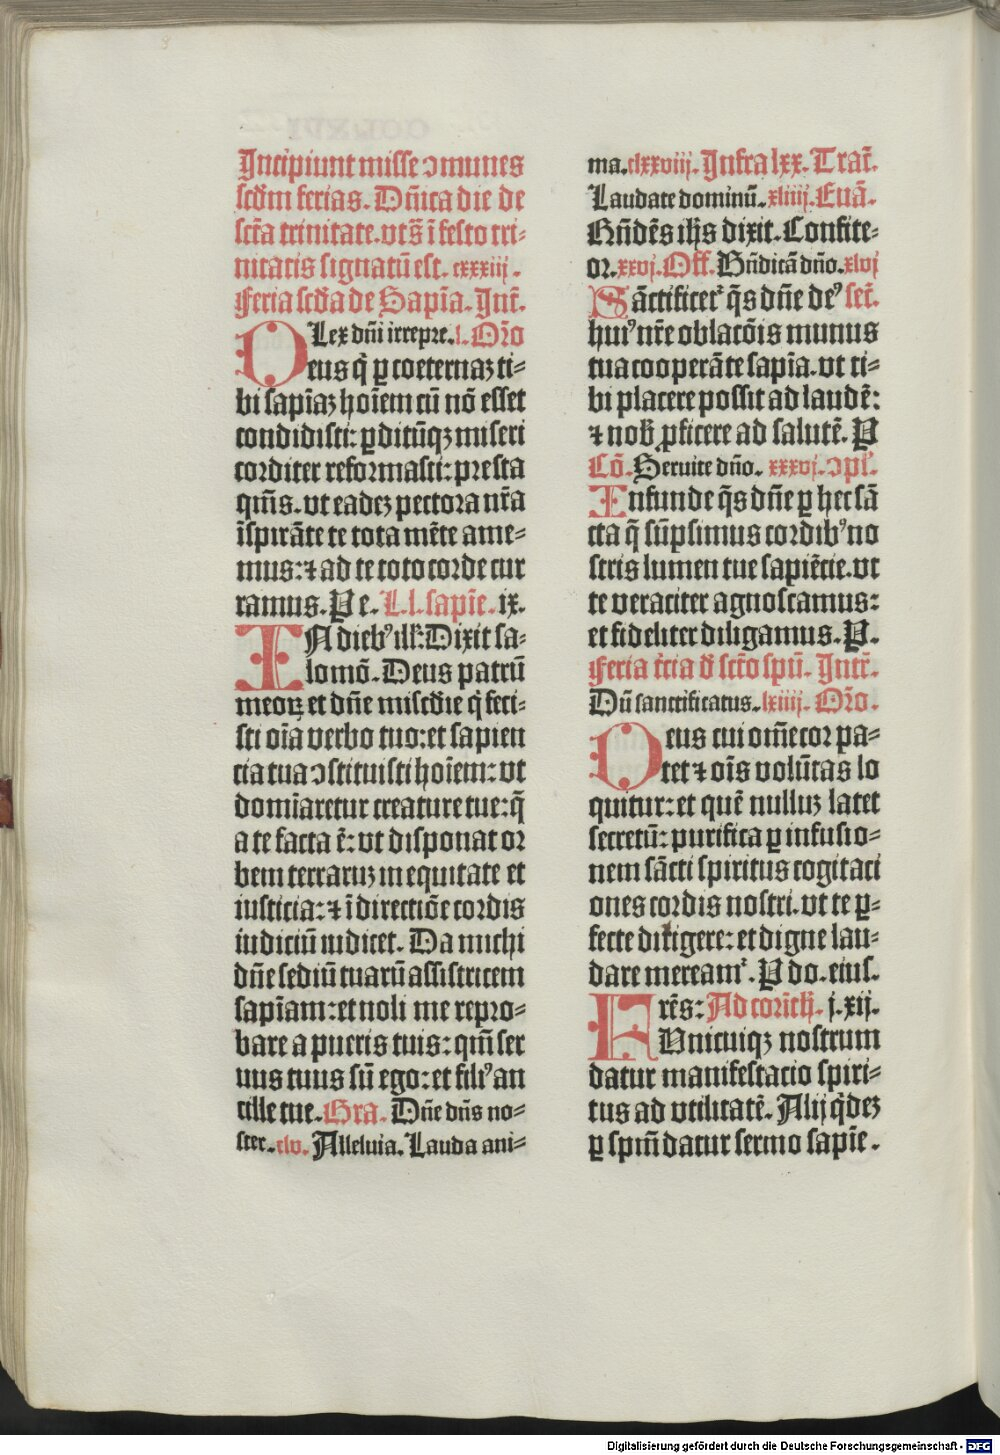 Incipiunt misse ↄmunes
scd̄m ferias. Dn̄ica die de
sct̄a trinitate. vts̄ ī festo tri⸗
nitatis signatū est. cxxxiij.
Feria scd̄a de Sapīa. Int̄.
Lex dn̄i irrepre. l. Or̄o
Deus q̇ ꝑ coeternaz ti⸗
bi sapīaz hoīem cū nō esset
condidisti: ꝑditūqz miseri
corditer reformasti: presta
qm̄s. vt eadez pectora nr̄a
īspirāte te tota mēte ame⸗
mus: ⁊ ad te toto corde cur
ramus. P e. L. l. sapīe. ix.
IN dieb⁹ ill̄. Dixit sa⸗
lomō. Deus patrū
meoꝝ et dn̄e miscd̄ie q̇ feci⸗
sti oīa verbo tuo: et sapien
cia tua ↄstituisti hoīem: vt
domīaretur creature tue: q̄
a te facta ē: vt disponat or
bem terraruz in equitate et
iusticia: ⁊ ī directiōe cordis
iudiciū iudicet. Da michi
dn̄e sediū tuarū assistricem
sapīam: et noli me repro⸗
bare a pueris tuis: qm̄ ser
uus tuus sū ego: et fili⁹ an
cille tue. Gra. Dn̄e dn̄s no⸗
ster. clv. Alleluia. Lauda ani⸗
ma. clxxviij. Infra lxx. Tract̄.
Laudate dominū. xliiij. Euā.
Rn̄dēs ih̄s dixit. Confite⸗
or. xxvj. Off. Bn̄dicā dn̄o. xlvj
Sāctificet᷑ q̄s dn̄e de⁹ sect̄.
hui⁹ nr̄e oblacōis munus
tua cooperāte sapīa. vt ti⸗
bi placere possit ad laudē:
⁊ nob̄ ꝓficere ad salutē. P
Cō. Seruite dn̄o. xxxvj. ↄpl̄.
Infunde q̄s dn̄e ꝑ hec sā
cta q̄ sūpsimus cordib⁹ no
stris lumen tue sapiēcie. vt
te veraciter agnoscamus:
et fideliter diligamus. P.
Feria t̄cia d̄ sct̄o spū. Int̄.
Dū sanctificatus. lxiiij. Or̄o.
Deus cui om̄e cor pa⸗
tet ⁊ oīs volūtas lo
quitur: et quē nulluz latet
secretū: purifica ꝑ infusio⸗
nem sācti spiritus cogitaci
ones cordis nostri. vt te ꝑ⸗
fecte diligere: et digne lau⸗
dare meream᷑. P do. eius.
Frēs: Ad corinth̄. j. xij.
Vnicuiqz nostrum
datur manifestacio spiri⸗
tus ad vtilitatē. Alij q̇dez
ꝑ spm̄ datur sermo sapīe.
Digitalisierung gefördert durch die Deutsche Forschungsgemeinschaft - DFG